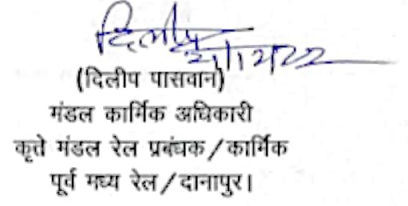 दिलीप
(दिलीप पासवान)
मंडल कार्मिक अधिकारी
कृते मंडल रेल प्रबंधक/कार्मिक
पूर्व मध्य रेल/दानापुर।